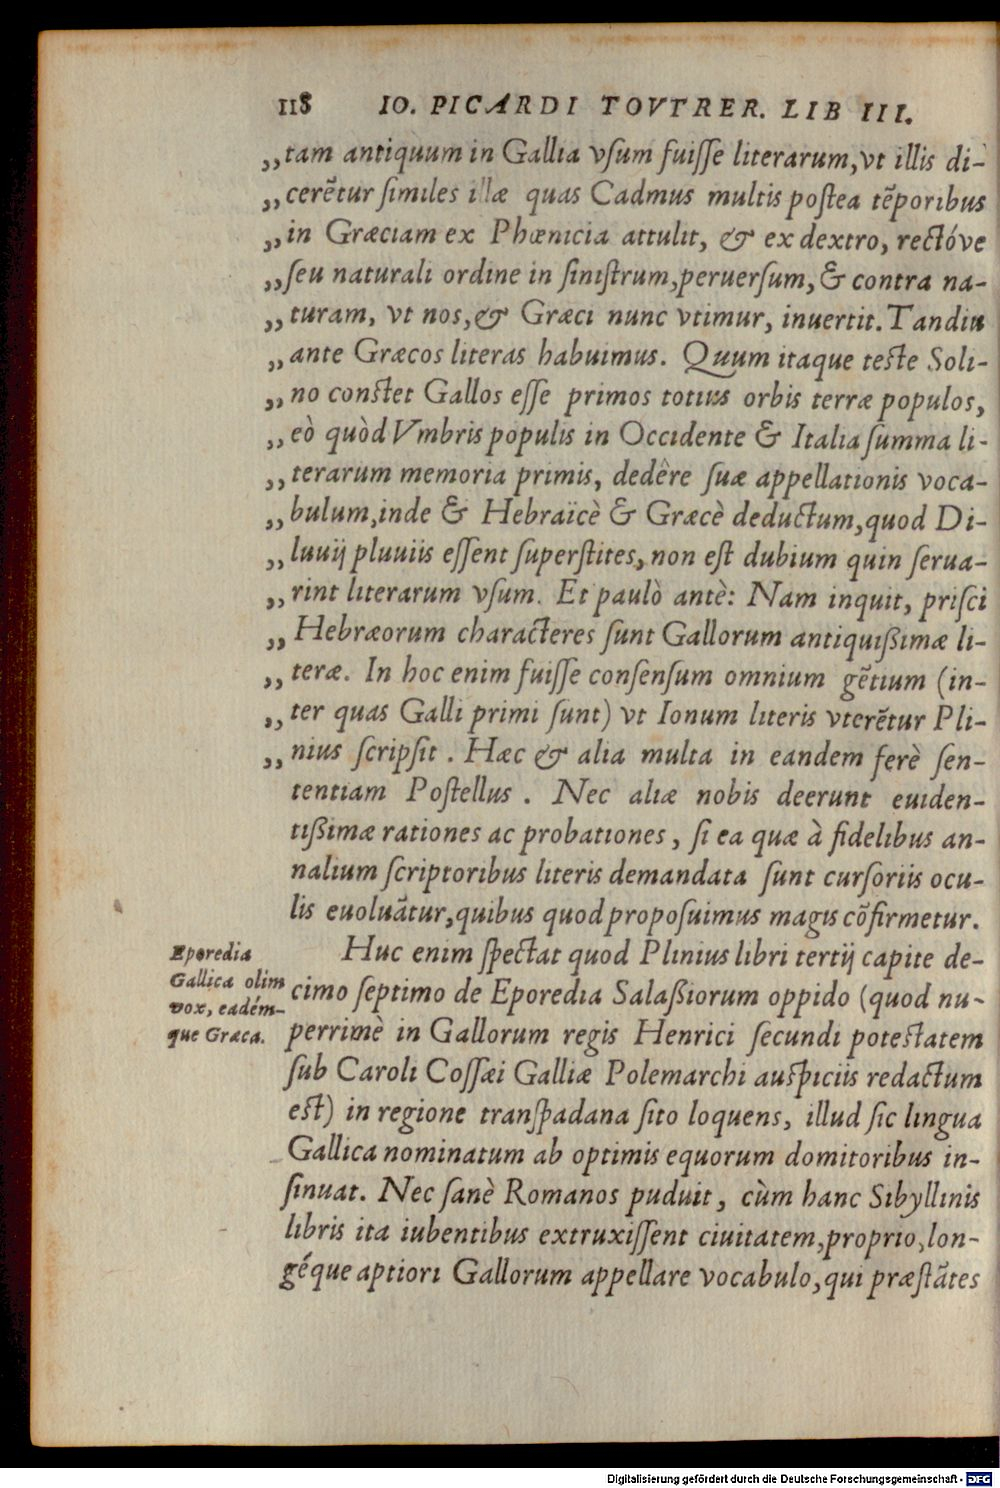 118 IO. PICARDI TOVTRER. LIB III.
„tam antiquum in Gallia vsum fuisse literarum, vt illis di-
„cerẽtur similes illæ quas Cadmus multis postea tẽporibus
„in Græciam ex Phœnicia attulit, & ex dextro, rectóve
„seu naturali ordine in sinistrum, peruersum, & contra na-
„turam, vt nos, & Græci nunc vtimur, inuertit. Tandiu
„ante Græcos literas habuimus. Quum itaque teste Soli-
„no constet Gallos esse primos totius orbis terræ populos,
„eò quòd Vmbris populis in Occidente & Italia summa li-
„terarum memoria primis, dedêre suæ appellationis voca-
„bulum, inde & Hebraïcè & Græcè deductum, quod Di-
„luuij pluuiis essent superstites, non est dubium quin serua-
„rint literarum vsum. Et paulò antè: Nam inquit, prisci
„Hebræorum characteres sunt Gallorum antiquißimæ li-
„teræ. In hoc enim fuisse consensum omnium gẽtium (in-
„ter quas Galli primi sunt) vt Ionum literis vterẽtur Pli-
„nius scripsit. Hæc & alia multa in eandem ferè sen-
tentiam Postellus. Nec aliæ nobis deerunt euiden-
tißimæ rationes ac probationes, si ea quæ à fidelibus an-
nalium scriptoribus literis demandata sunt cursoriis ocu-
lis euoluãtur, quibus quod proposuimus magis cõfirmetur.
Eporedia
Gallica olim
vox, eadém-
que Græca.
Huc enim spectat quod Plinius libri tertij capite de-
cimo septimo de Eporedia Salaßiorum oppido (quod nu-
perrimè in Gallorum regis Henrici secundi potestatem
sub Caroli Cossæi Galliæ Polemarchi auspiciis redactum
est) in regione transpadana sito loquens, illud sic lingua
Gallica nominatum ab optimis equorum domitoribus in-
sinuat. Nec sanè Romanos puduit, cùm hanc Sibyllinis
libris ita iubentibus extruxissent ciuitatem, proprio, lon-
géque aptiori Gallorum appellare vocabulo, qui præstãtes
Digitalisierung gefördert durch die Deutsche Forschungsgemeinschaft - DFG